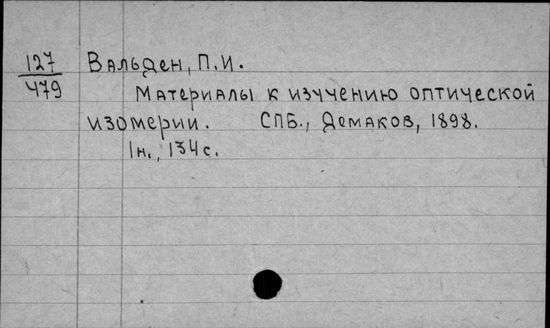 127 Вальден, П.И.
479
Материалы к изучению оптической
изомерии. СПБ., Демаков, 1898.
1н., 134 с.